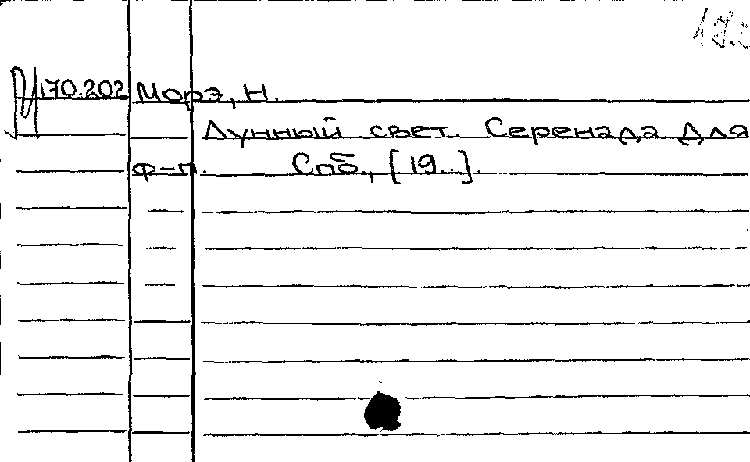 170.202 Морэ, Н.
Лунный свет. Серенада для
ф-п. Спб., [19..].